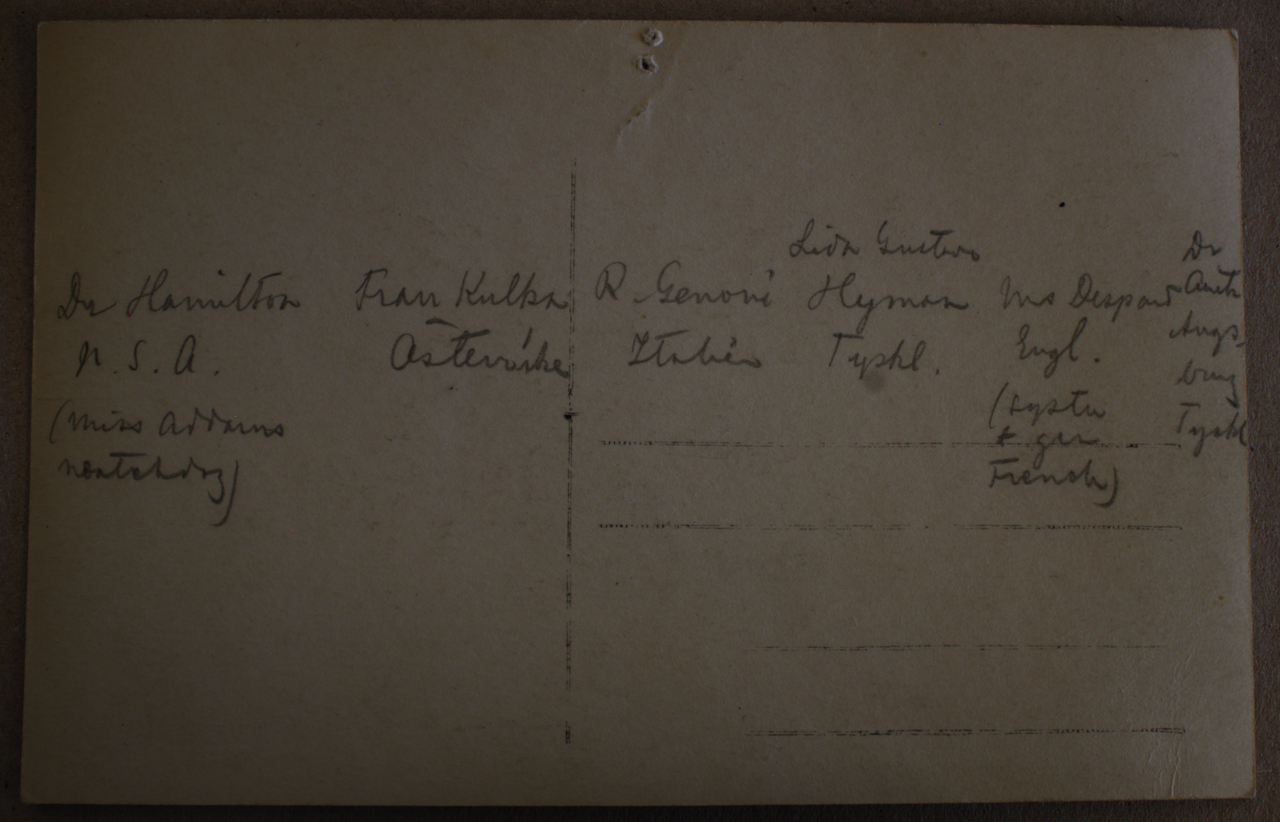 Dr Hamilton
U.S.A.
(Miss Addams
Frau Kulka
Österrike
R. Genoni
Italien
Lida Gustava
Hyman
Tyskl.
Mrs Despard
Engl.
(syster
t. gen
French)
Dr
Anita
Augs-
burg
Tyskl